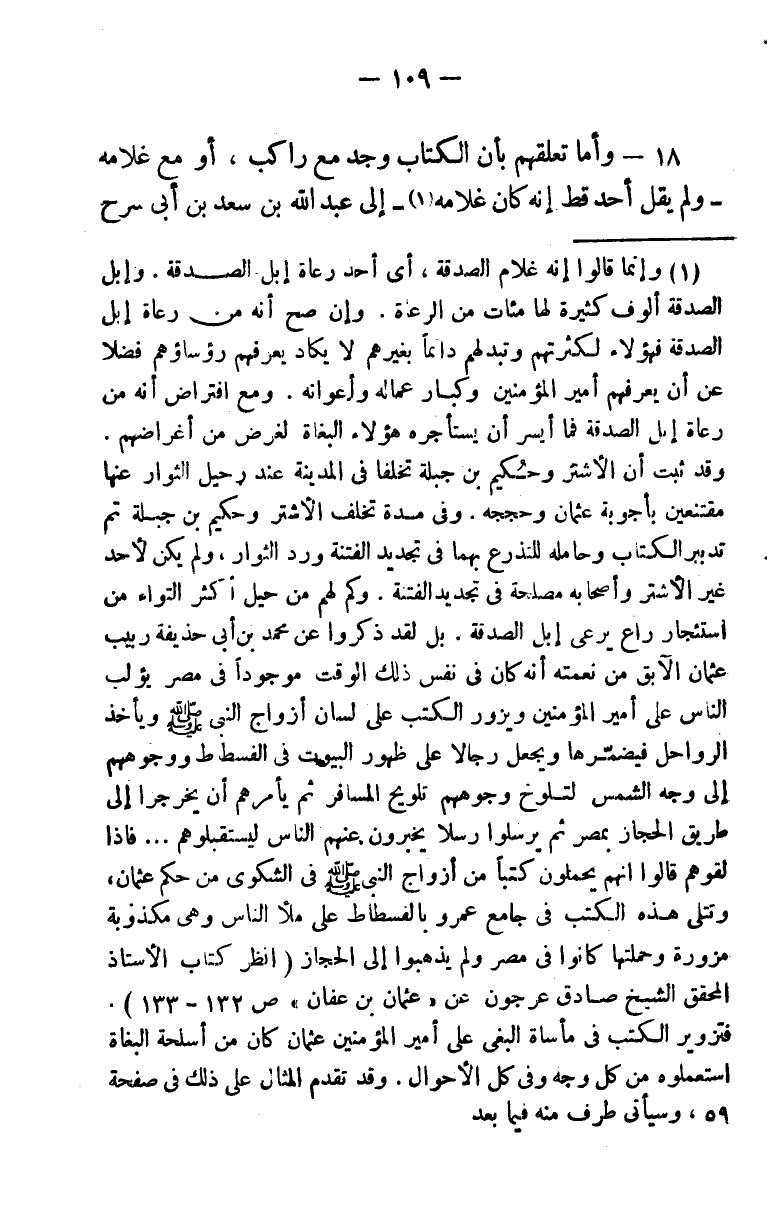 — ١٠٩ —
١٨ — وأما تعلقهم بأن الكتاب وجد مع راكب ، أو مع غلامه
ـ ولم يقل أحد قط إنه كان غلامه (١) ـ إلى عبد الله بن سعد بن أبى سرح
(١) وإنما قالوا إنه غلام الصدقة ، أى أحد رعاة إبل الصدقة . وإبل
الصدقة ألوف كثيرة لها مئات من الرعاة . وإن صح أنه من رعاة إبل
الصدقة فهؤلاء لكثرتهم وتبدلهم دائماً بغيرهم لا يكاد يعرفهم رؤساؤهم فضلا
عن أن يعرفهم أمير المؤمنين وكبار عماله وأعوانه . ومع افتراض أنه من
رعاة إبل الصدقة فما أيسر أن يستأجره هؤلاء البغاة لغرض من أغراضهم .
وقد ثبت أن الأشتر وحُكيم بن جبلة تخلفا فى المدينة عند رحيل الثوار عنها
مقتنعين بأجوبة عثمان وحججه . وفى مدة تخلف الأشتر وحكيم بن جبلة تم
تدبير الكتاب وحامله للتذرع بهما فى تجديد الفتنة ورد الثوار ، ولم يكن لأحد
غير الأشتر وأصحابه مصلحة فى تجديد الفتنة . وكم لهم من حيل أكثر التواء من
استئجار راع يرعى إبل الصدقة . بل لقد ذكروا عن محمد بن أبى حذيفة ربيب
عثمان الآبق من نعمته أنه كان فى نفس ذلك الوقت موجوداً فى مصر يؤلب
الناس على أمير المؤمنين ويزور الكتب على لسان أزواج النبى ﷺ ويأخذ
الرواحل فيضمّرها ويجعل رجالا على ظهور البيوت فى الفسطاط ووجوههم
إلى وجه الشمس لتلوخ وجوههم تلويح المسافر ثم يأمرهم أن يخرجرا إلى
طريق الحجاز بمصر ثم يرسلوا رسلا يخبرون عنهم الناس ليستقبلوهم ... فاذا
لقوهم قالوا انهم يحملون كتباً من أزواج النبى ﷺ فى الشكوى من حكم عثمان،
وتتلى هذه الكتب فى جامع عمرو بالفسطاط على ملأ الناس وهى مكذوبة
مزورة وحملتها كانوا فى مصر ولم يذهبوا إلى الحجاز ( انظر كتاب الأستاذ
المحقق الشيخ صادق عرجون عن « عثمان بن عفان » ص ١٣٢ – ١٣٣ ) .
فتزوير الكتب فى مأساة البغى على أمير المؤمنين عثمان كان من أسلحة البغاة
استعملوه من كل وجه وفى كل الأحوال . وقد تقدم المثال على ذلك فى صفحة
٥٩ ، وسيأتى طرف منه فيما بعد